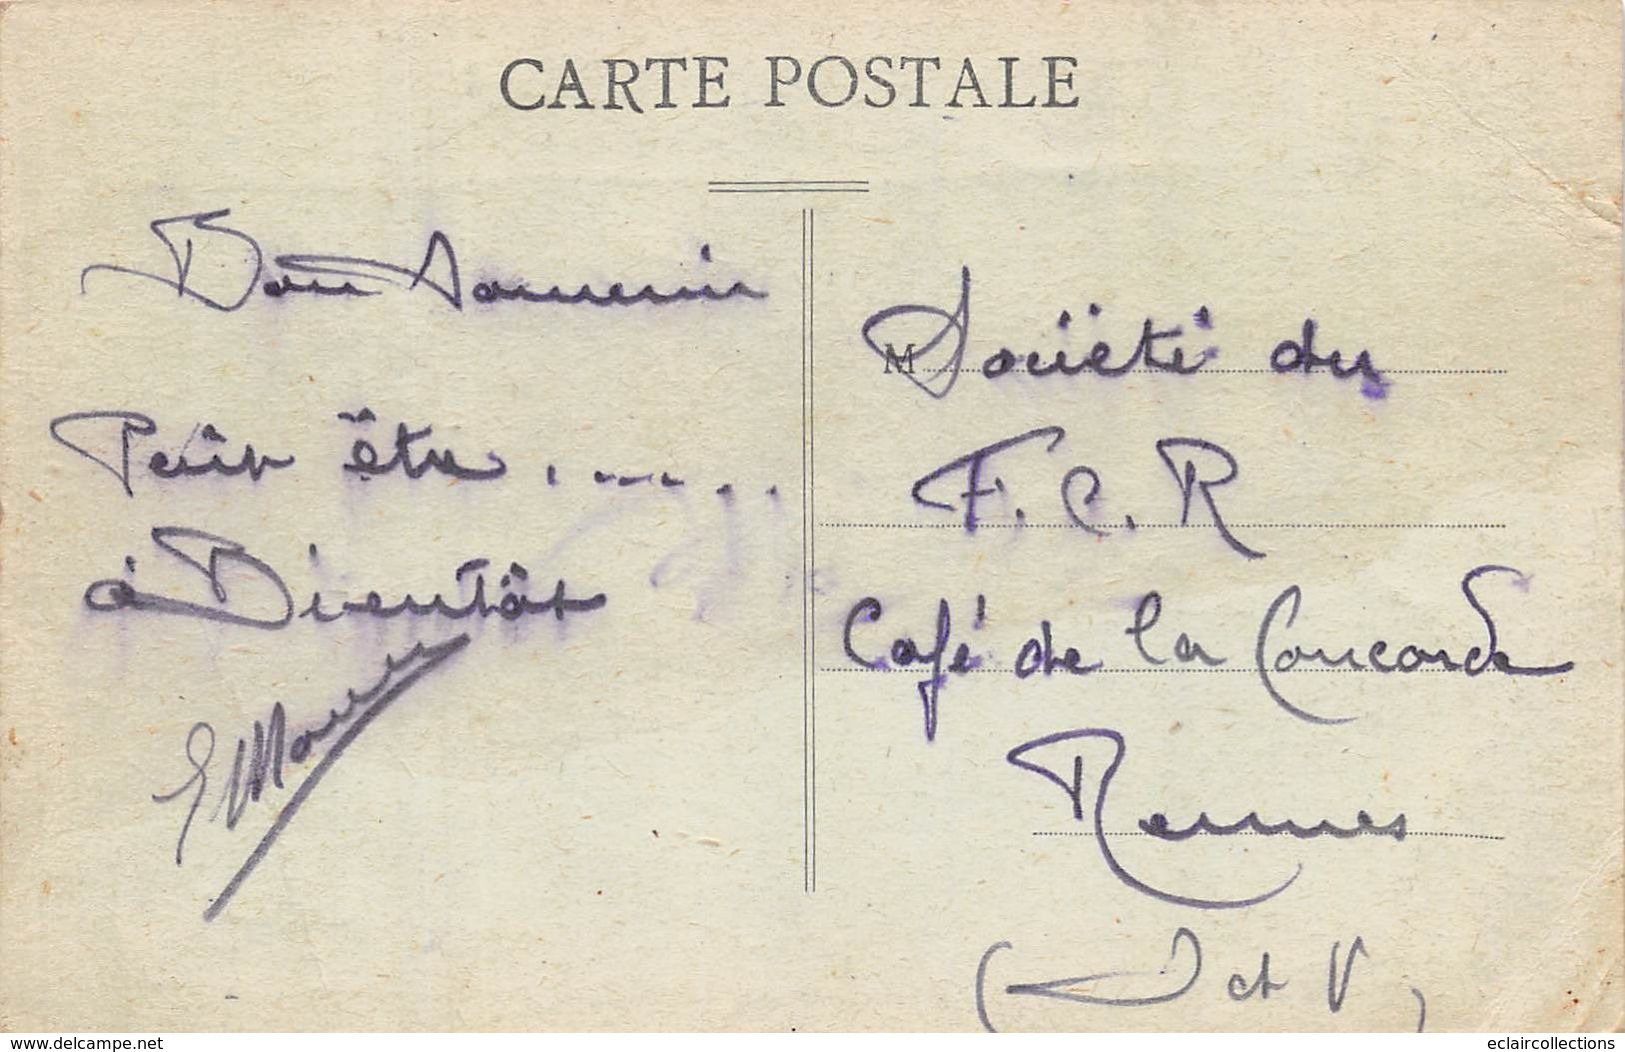 CARTE POSTALE
Bon Souvenir
Peut être . ..... . .
à Bientôt
M Société du
F. C. R
Café de la Concorde
Rennes
(I et V)
www.delcampe.net
eclaircollections